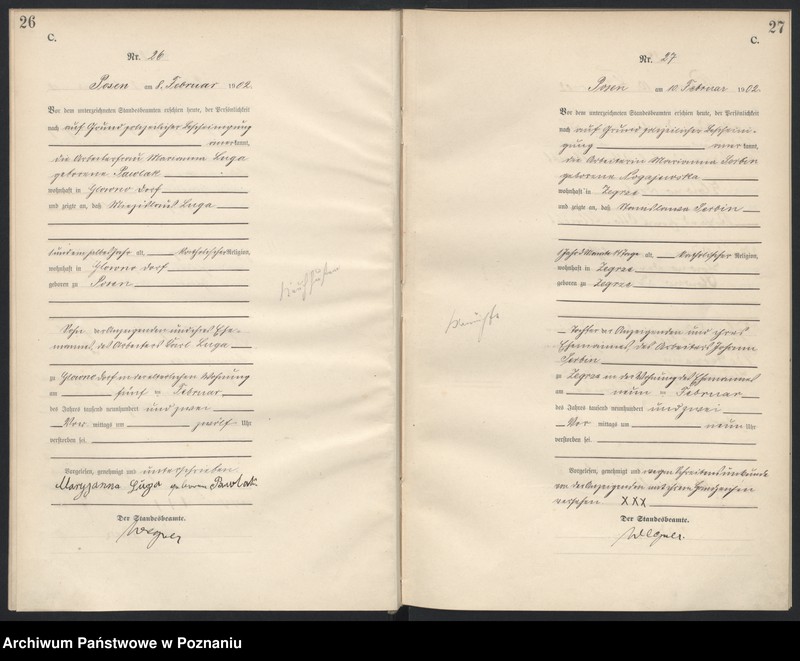 26
C.
Nr. 26
Posen am 8. Februar 1902.
Vor dem unterzeichneten Standesbeamten erschien heute, der Persönlichkeit
nach auf Grund polizeilicher Bescheinigung
anerkannt,
die Arbeiterfrau Marianna Luga
geborene Pawlak
wohnhaft in Glowno Dorf
und zeigte an, daß Luga
alt, katholischer Religion,
wohnhaft in Glowno Dorf
geboren zu Posen
Sohn der Anzeigenden und ihres Ehe-
mannes, des Arbeiters Karl Luga
zu Glowno Dorf in der elterlichen Wohnung
am fünf ten Februar
des Jahres tausend neunhundert und zwei
Vor mittags um zwölf Uhr
verstorben sei.
Vorgelesen, genehmigt und unterschrieben
Maryjanna Luga geboren Pawlak
Der Standesbeamte.
Wegner
27
C.
Nr. 27
Posen am 10. Februar 1902.
Vor dem unterzeichneten Standesbeamten erschien heute, der Persönlichkeit
nach auf Grund polizeilicher Beschein-
gung anerkannt,
die Arbeiterin Marianna Serbin
geborene
wohnhaft in Zegrze
und zeigte an, daß Stanislawa Serbin
alt, katholischer Religion,
wohnhaft in Zegrze
geboren zu Zegrze
Tochter der Anzeigenden und ihres
Ehemannes, des Arbeiters Johann
Serbin
zu Zegrze in der Wohnung des Ehemannes
am neun ten Februar
des Jahres tausend neunhundert und zwei
Vor mittags um neun Uhr
verstorben sei.
Vorgelesen, genehmigt und wegen Schreibensunkunde
von der Anzeigenden mit ihrem Handzeichen
versehen XXX
Der Standesbeamte.
Wegner.
Archiwum Państwowe w Poznaniu